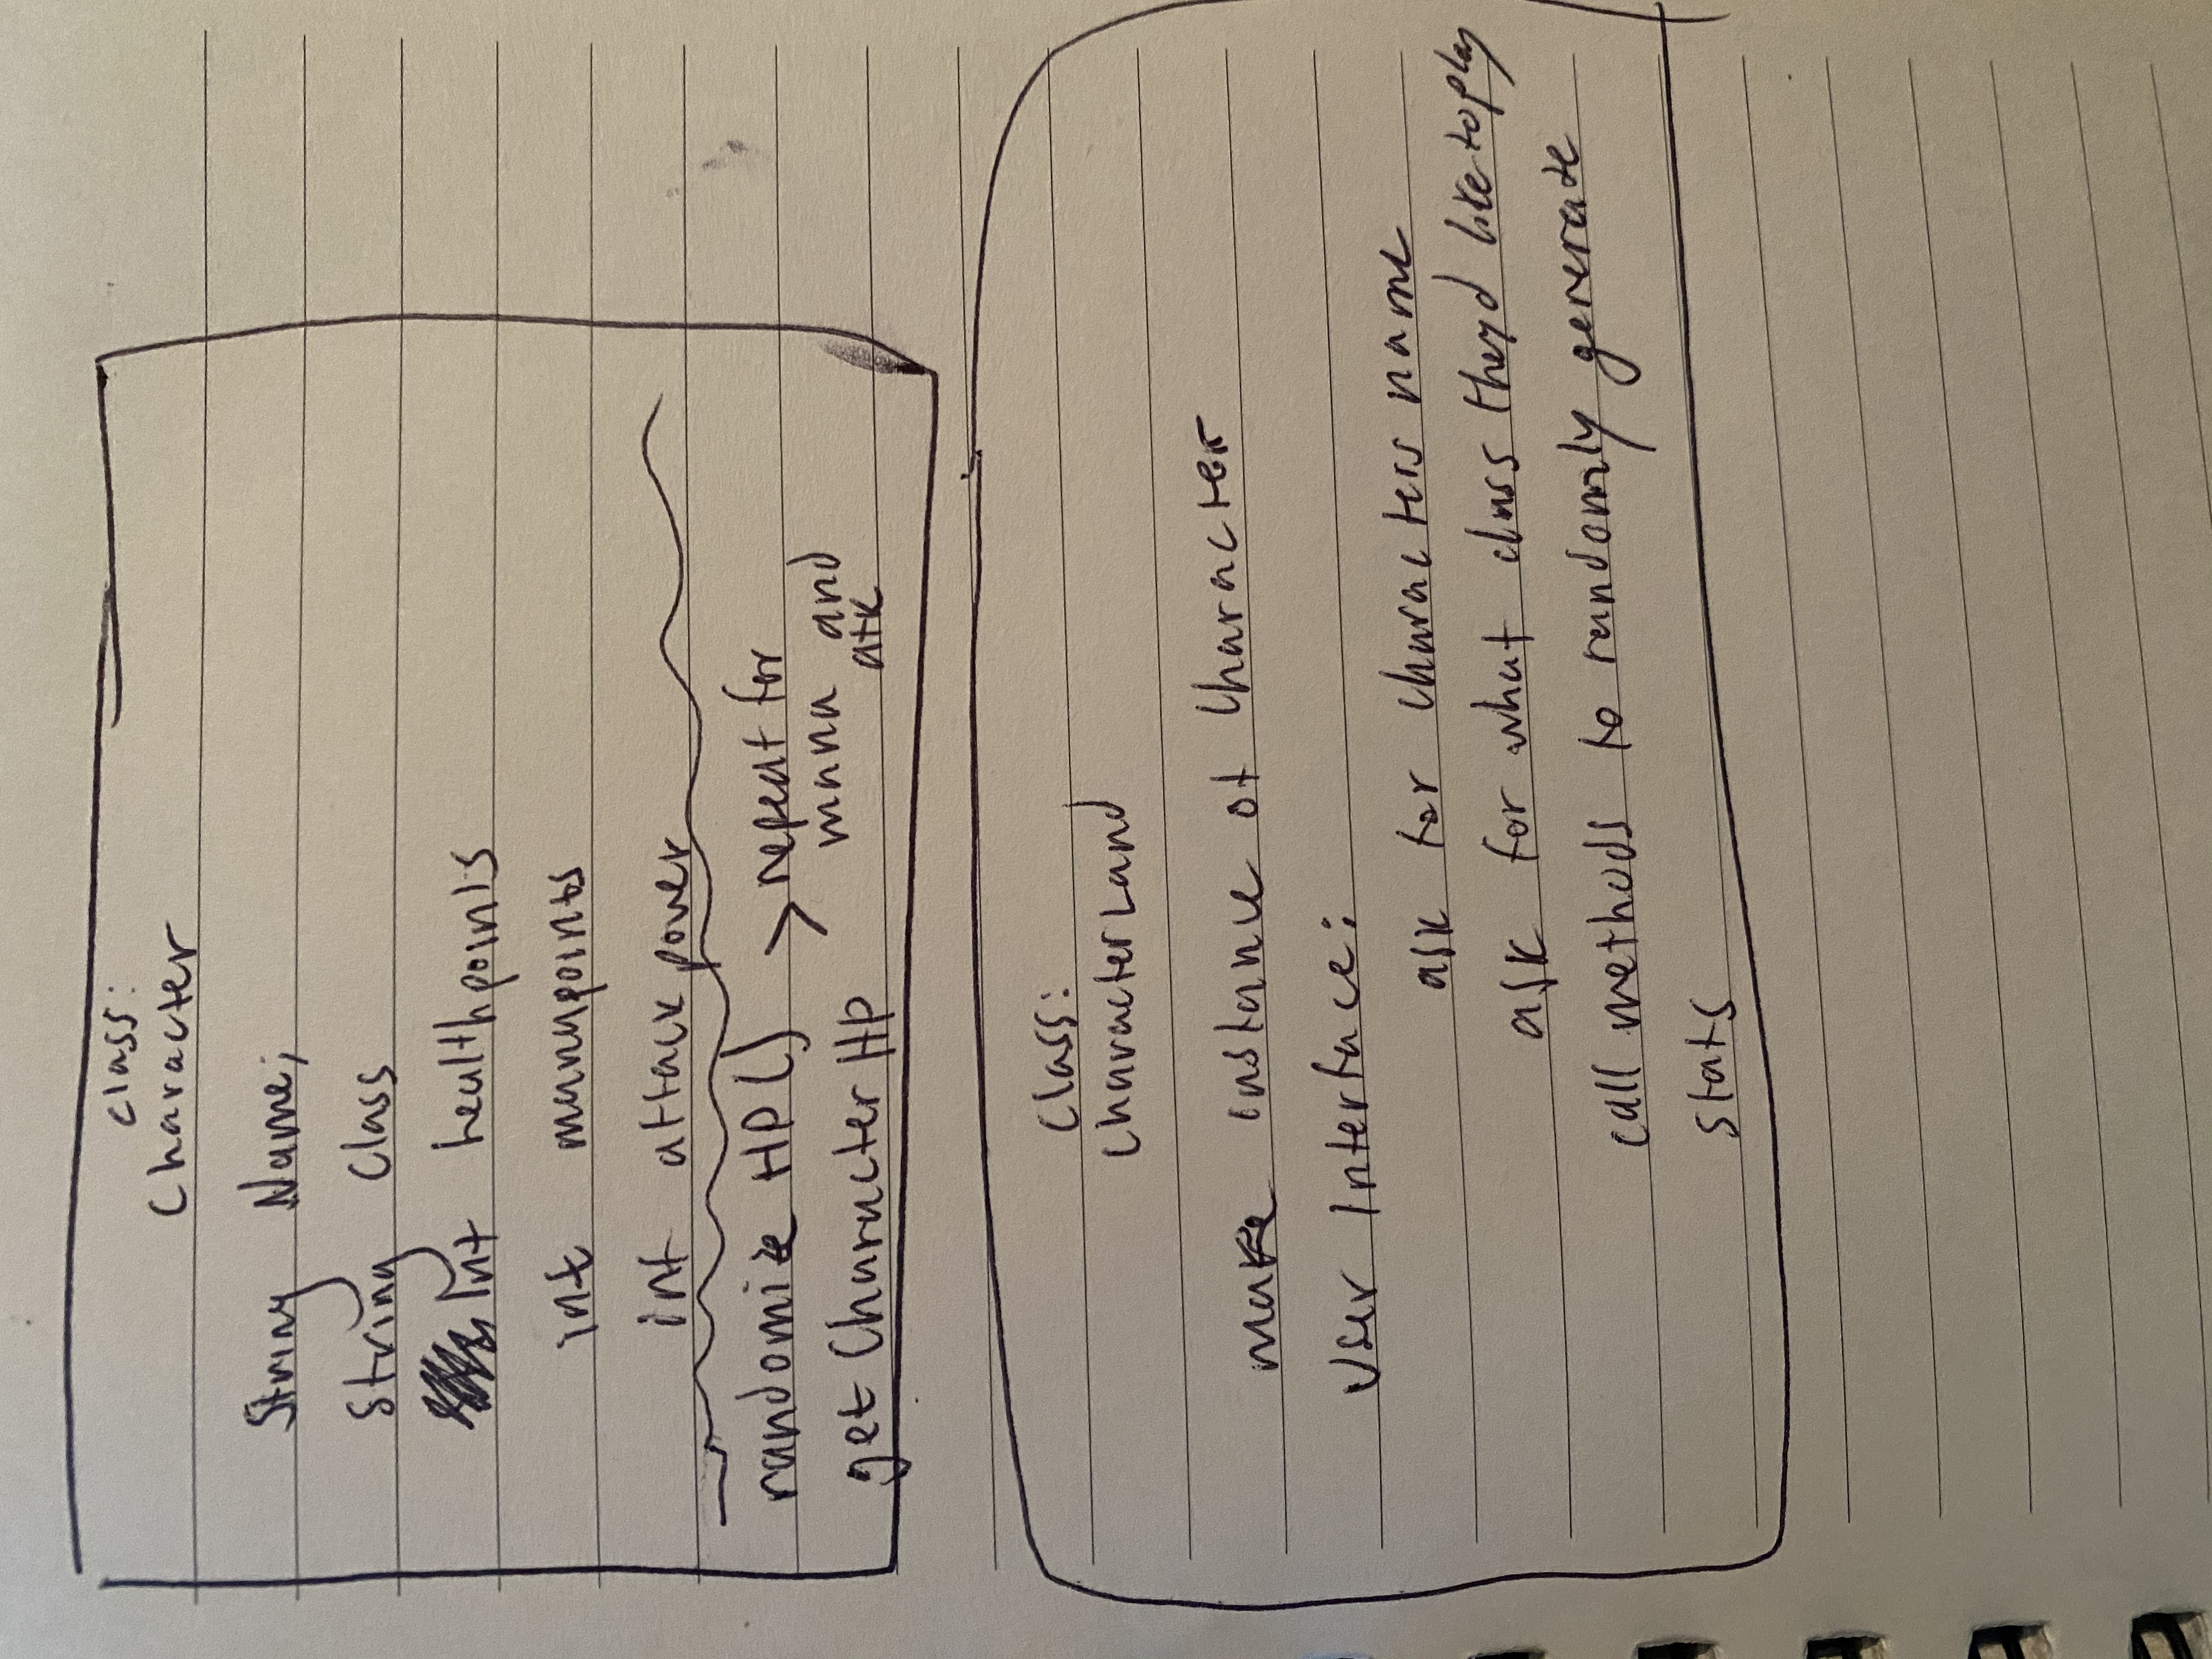 class:
Character
String Name;
String Class
Int healthpoints
int manapoints
int attackpower
randomize HP() > repeat for
mana and
atk
get Character HP
Class:
CharacterLand
make instance of Character
User Interface:
ask for characters name
ask for what class they'd like to play
call methods to randomly generate
stats